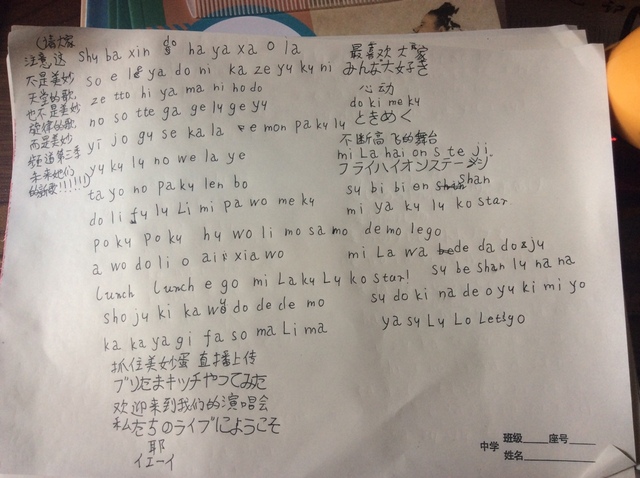 (请大家
注意这
不是美妙
天堂的歌
也不是美妙
旋律的歌
而是美妙
频道第三季
未来她们
的新歌!!!!!!)
shu ba xin go ha ya xa O la
so e l ya do ni ka ze yu ku ni
ze tto hi ya ma ni ho do
no so tte ga ge lu ge yu
yi jo gu se ka la e mon pa ku lu
yu ku lu no we la ye
ta yo no pa ku len bo
do li fu lu Li mi pa wo me ku
po ku Po ku hu wo li mo sa mo de mo lego
a wo do li o air xia wo
Lunch Lunch e go mi La ku Lu ko Star!
sho ju ki ka wo do de de mo
ka ka ya gi fa so ma Li ma
抓住美妙蛋 直播上传
プリたまキッチやってみた
欢迎来到我们的演唱会
私たちのライブにようこそ
耶
イエーイ
最喜欢大家
みんな大好き
心动
do ki me ku
ときめく
不断高飞的舞台
mi La hai on S te ji
フライハイオンステージ
su bi bi en shan
mi ya ku lu ko star
mi La wa de da do ju
su be shan lu na na
su do ki na de o yu ki mi yo
ya su Lu Lo Let!go
中学 班级 座号
姓名